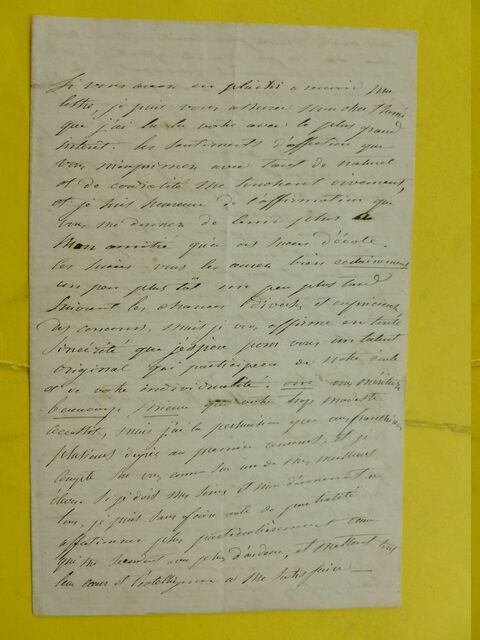 Si vous avez eu plaisir a recevoir ma
lettre, je puis vous assurer mon cher
que j'ai lu la votre avec le plus grand
interet. les sentiments d'affection que
vous m'exprimez avec tant de naturel
et de cordialité me touchent vivement,
et je suis heureux de l'affirmation que
vous me donnez de tenir plus a
mon amitié qu'a vos succès d'école.
les succès vous les aurez bien certainement
un peu plus tôt un peu plus tard
suivant les chances diverses et capricieuses
des concours, mais je vous affirme en toute
sincérité que j'espère pour vous un talent
original qui participera de notre école
et de votre individualité. oui vous méritez
beaucoup mieux que votre trop modeste
accessit, mais j'ai la persuasion que vous franchirez
plusieurs degrés au premier concours, et je
compte sur vous comme sur un de mes meilleurs
élèves. Si je dois mes soins et mon dévouement a
tous, je puis sans faire acte de partialité
affectionner plus particulièrement ceux
qui me secondent avec plus d'ardeur, et mettent tout
leur coeur et l'intelligence a me satisfaire